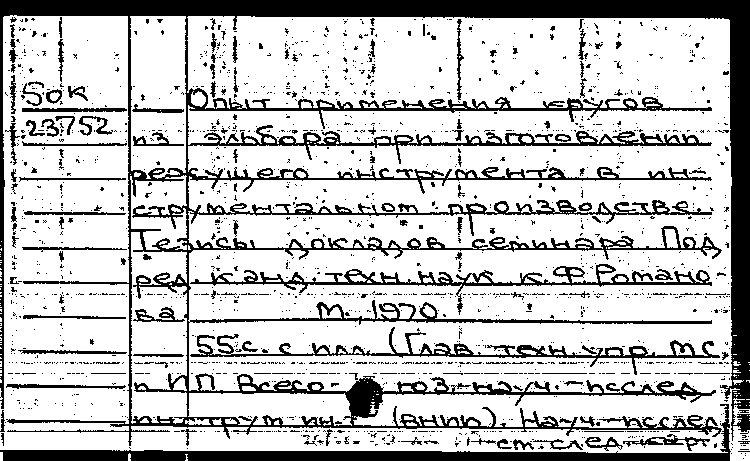 Бок
23752
Опыт применения кругов
из эльбора при изготовлении
режущего инструмента в ин-
струментальном производстве.
Тезисы докладов семинара. Под
ред. канд. техн. наук К.Ф. Романо-
ва. М., 1970.
55 с. с илл. (Глав. техн. упр. МС
и ИП. Всесо- юз. науч.-исслед.
инструм. ин-т (ВНИИ). Науч.-исслед.
см. след. карт.